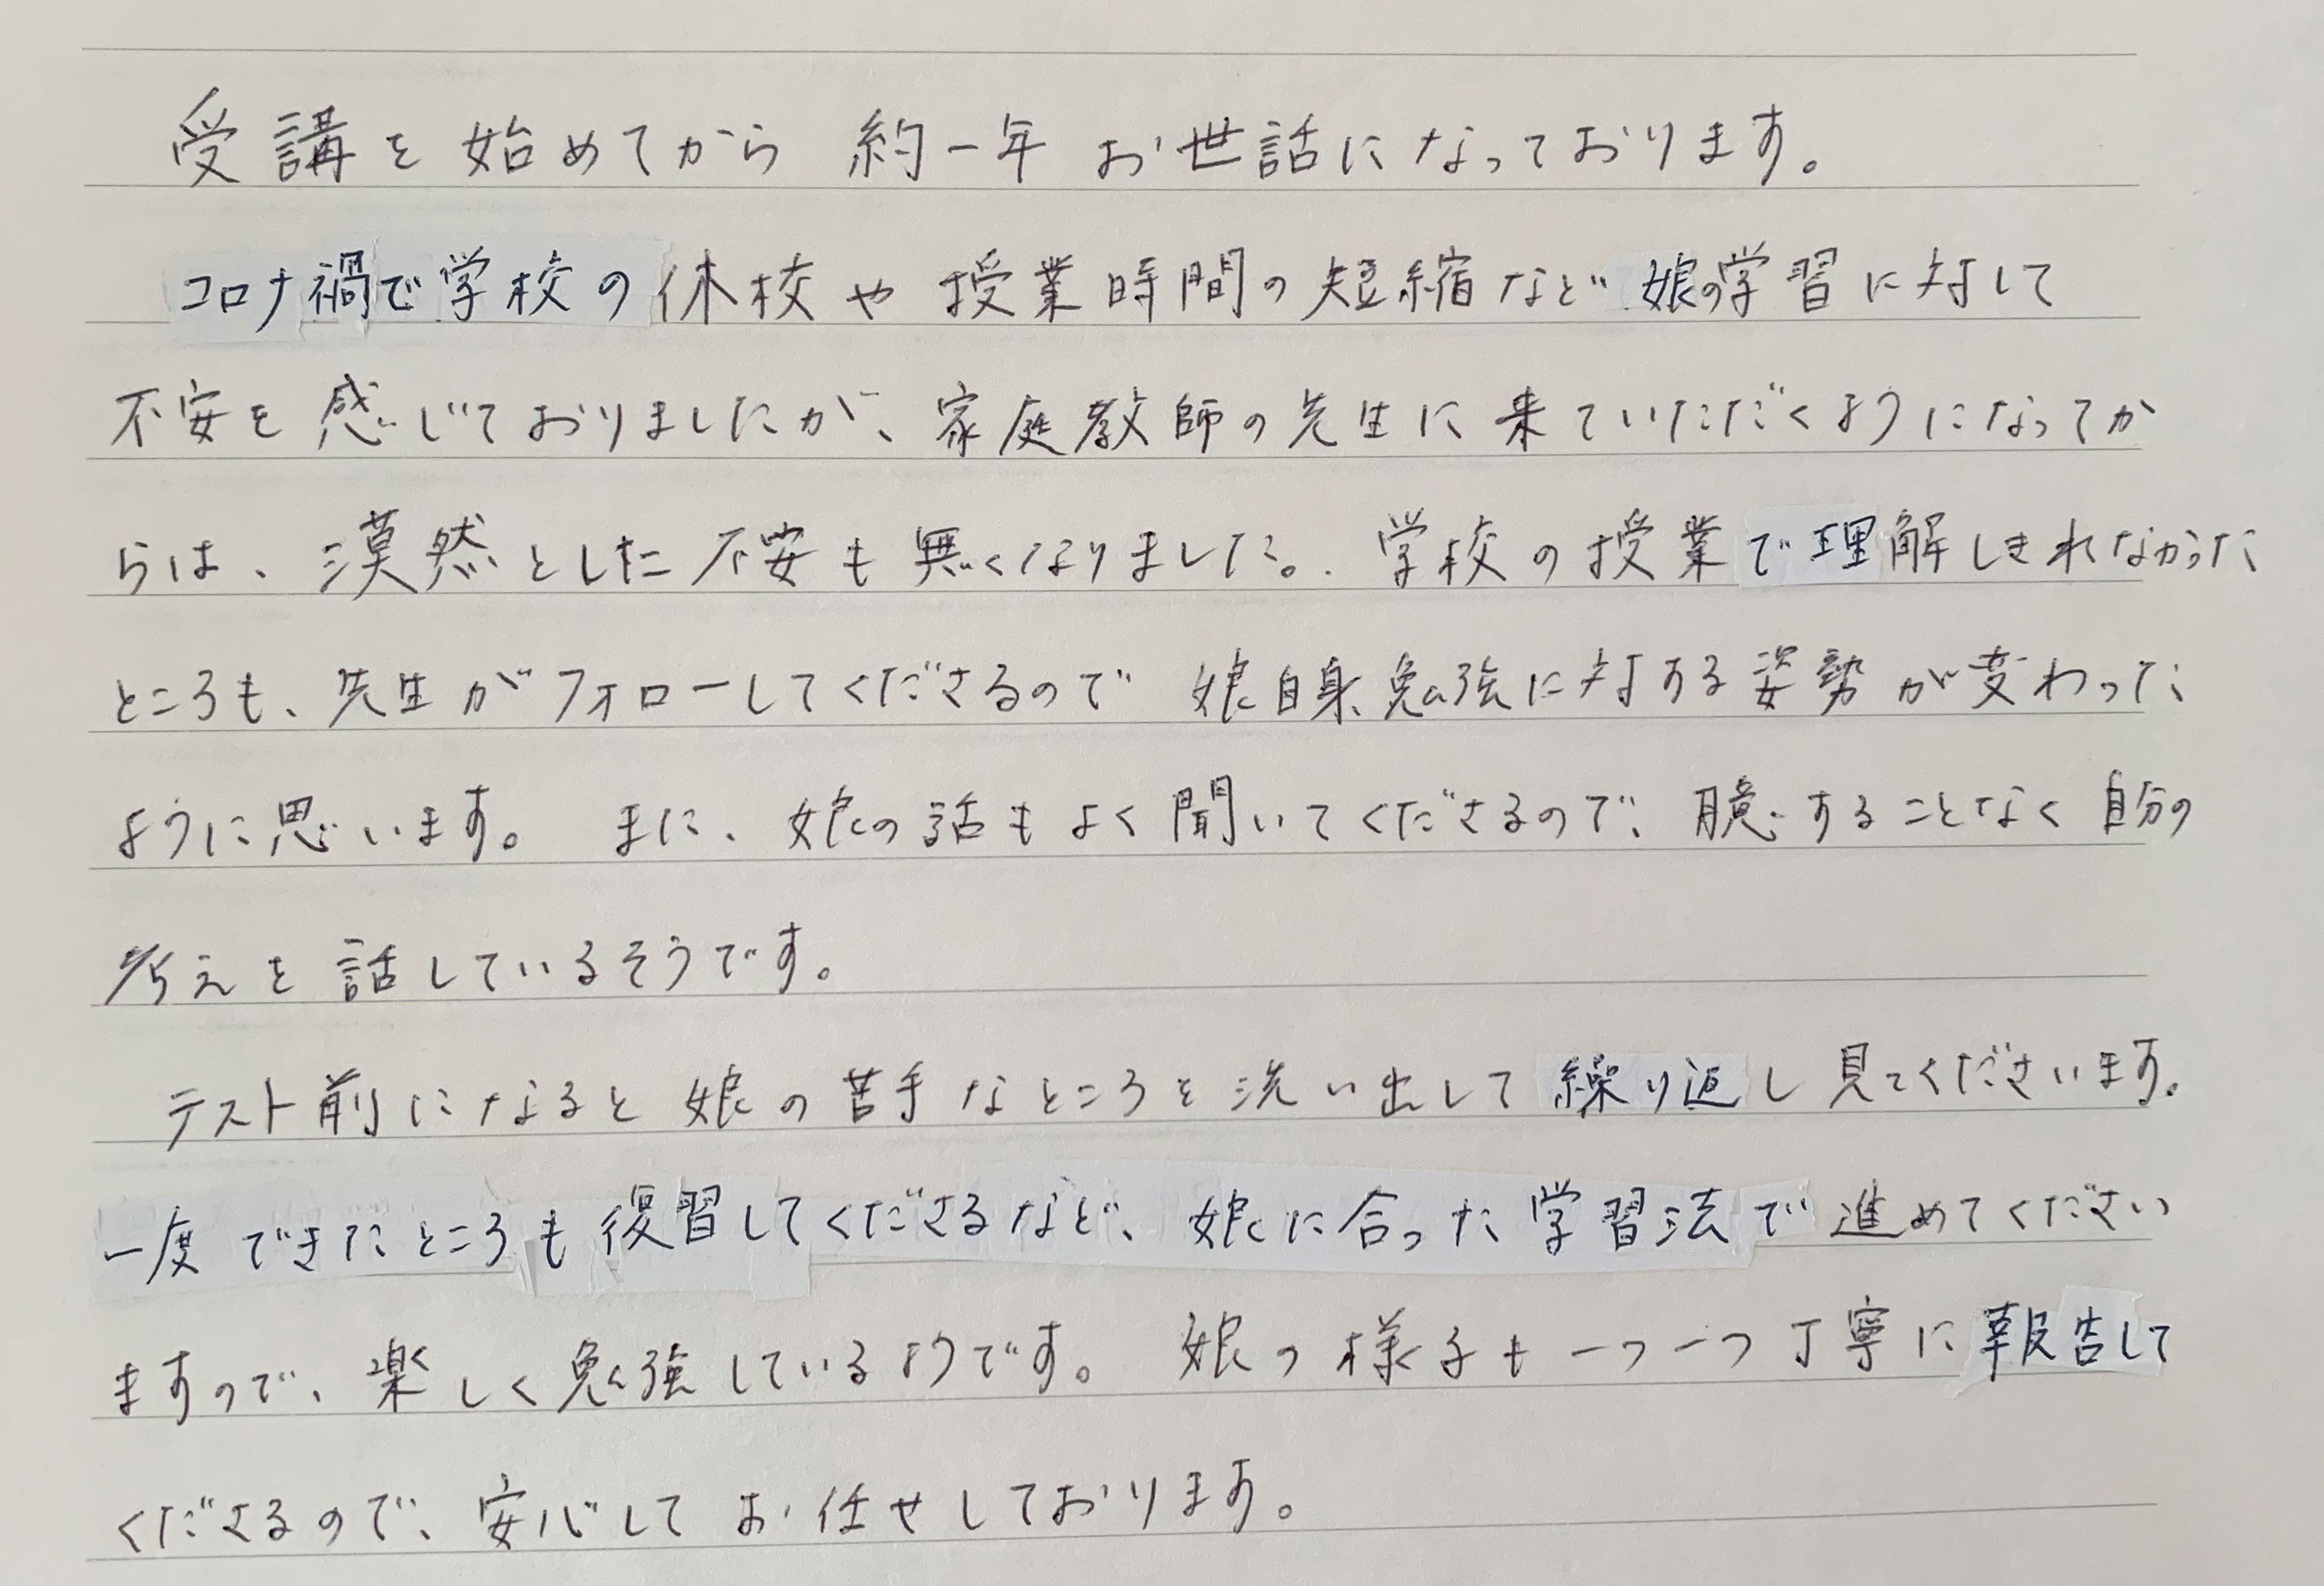 受講を始めてから 約一年 お世話になっております。
コロナ禍で学校の休校や授業時間の短縮など娘の学習に対して
不安を感じておりましたが、家庭教師の先生に来ていただくようになってか
らは、漠然とした不安も無くなりました。学校の授業で理解しきれなかった
ところも、先生がフォローしてくださるので 娘自身勉強に対する姿勢が変わった
ように思います。 また、娘の話もよく聞いてくださるので、臆することなく自分の
考えを話しているそうです。
テスト前になると娘の苦手なところを洗い出して繰り返し見てくださいます。
一度できたところも復習してくださるなど、娘に合った学習法で進めてください
ますので、楽しく勉強しているようです。 娘の様子も一つ一つ丁寧に報告して
くださるので、安心してお任せしております。